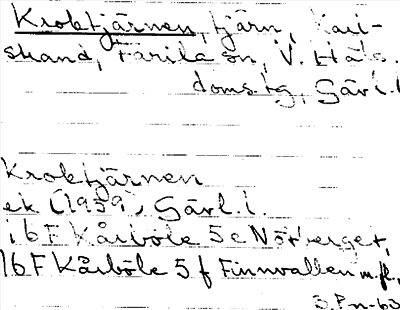 Kroktjärnen, tjärn, Karl-
strand, Färila sn, V. Häls.
doms.tg, Gävl.l
Kroktjärnen
ek (1959), Gävl.l.
16 F Kårböle 5 e Nötberget,
16 F Kårböle 5 f Finnvallen m.fl.,